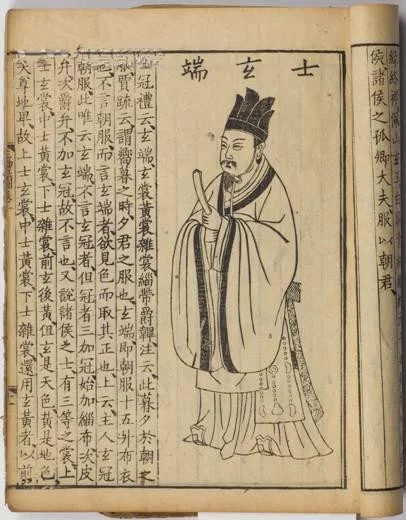 侯諸侯之孤卿大夫服以朝君
士玄端
士冠禮云玄端玄裳黃裳雜裳緇帶爵韠注云此暮夕於朝之
服賈疏云謂嚮暮之時夕君之服也玄端即朝服十五升布衣
也不言朝服而言玄端者欲見色而取其正也上云主人玄冠
朝服此唯云玄端不言玄冠者但冠者三加冠始加緇布次皮
弁次爵弁不加玄冠故不言也又說諸侯之士有三等之裳上
士玄裳中士黃裳下士雜裳前玄後黃但玄是天色黃是地色
天尊地卑故上士玄裳中士黃裳下士雜裳還用玄黃者以前